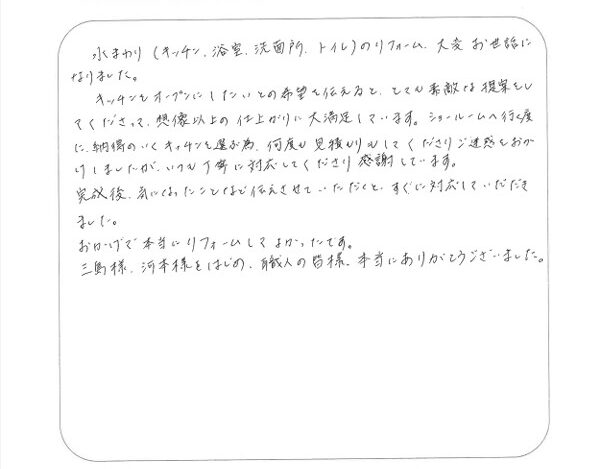 水まわり(キッチン、浴室、洗面所、トイレ)のリフォーム、大変お世話に
なりました。
キッチンをオープンにしたいとの希望を伝えると、とても素敵な提案をし
てくださって、想像以上の仕上がりに大満足しています。ショールームへ行く度
に、納得のいくキッチンを選ぶ為、何度も見積もりもしてくださりご迷惑をおか
けしましたが、いつも丁寧に対応してくださり感謝しています。
完成後、気になったことなど伝えさせていただくと、すぐに対応していただき
ました。
おかげで本当にリフォームしてよかったです。
三島様、河本様をはじめ、職人の皆様、本当にありがとうございました。